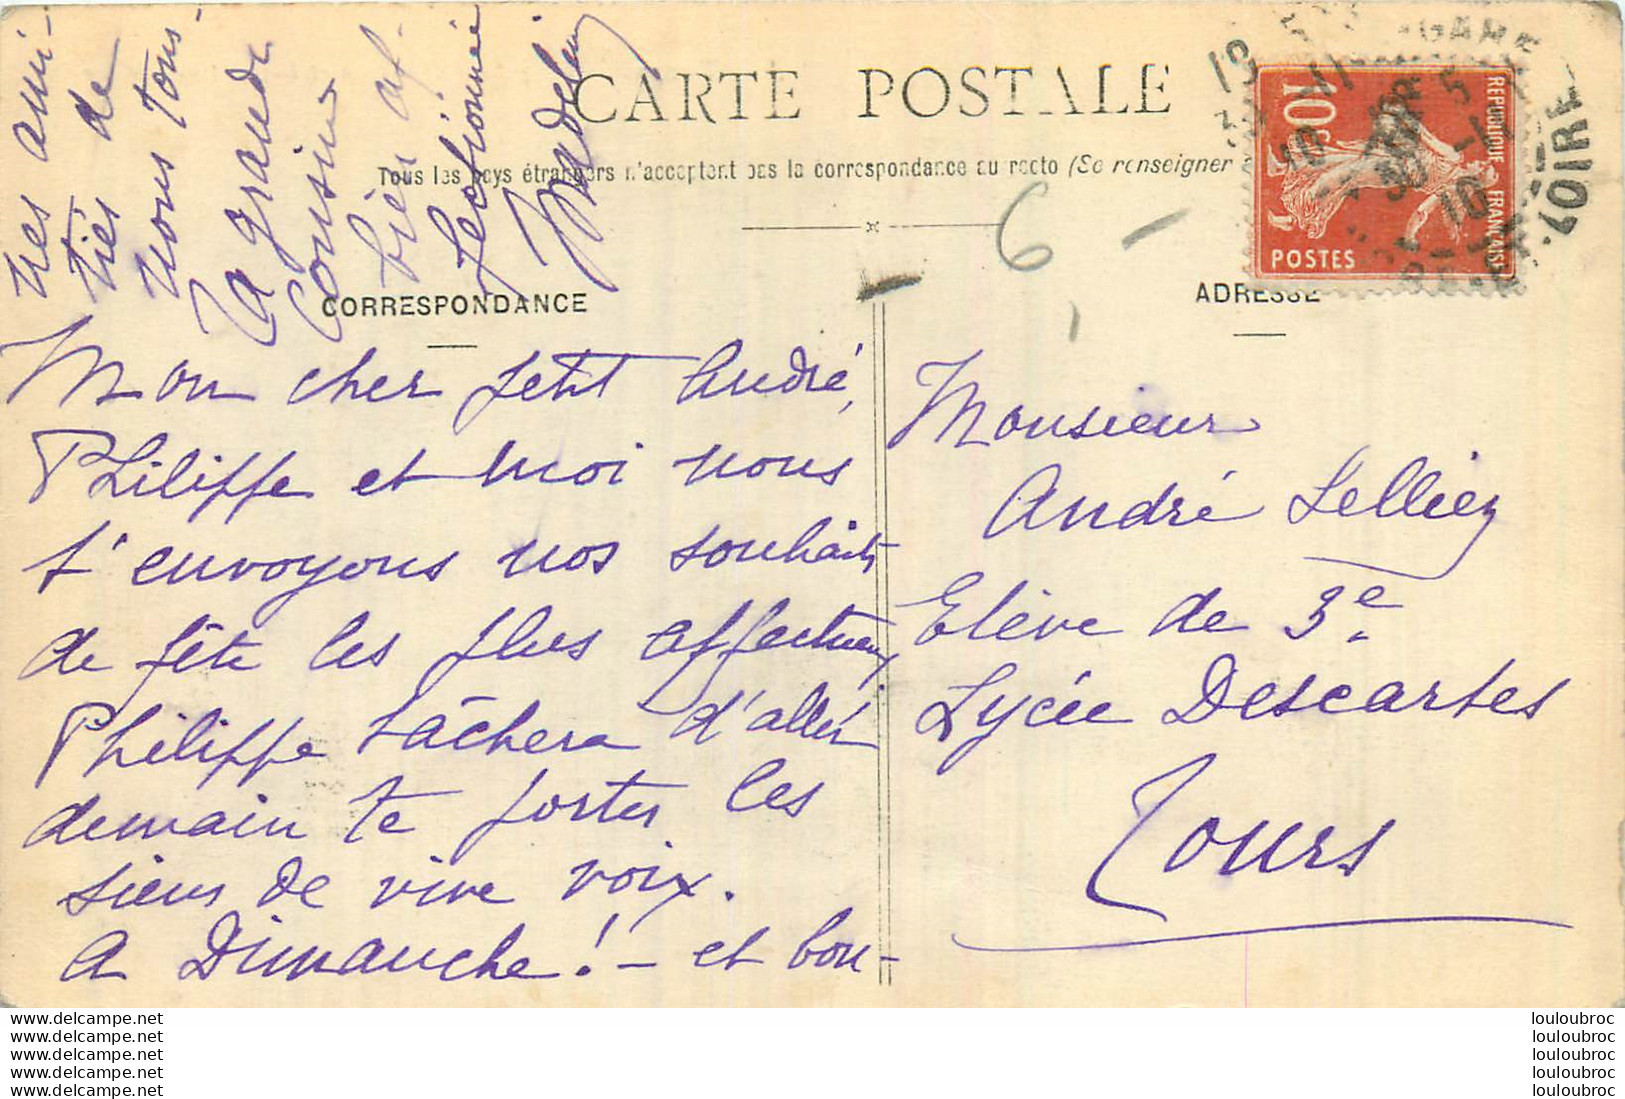 CARTE POSTALE
Tous les pays étrangers n'acceptent pas la correspondance au recto (Se renseigner
CORRESPONDANCE
ADRESSE
Mon cher petit André,
Philippe et moi nous
t'envoyons nos souhaits
de fête les plus affectueux
Philippe tâchera d'aller
demain te porter les
siens de vive voix.
A Dimanche! - et bon-
nes ami-
tiés de
nous tous
Ta grande
cousine
bien af-
fectionnée
Madeleine
Monsieur
André Lelliez
Elève de 3e
Lycée Descartes
Tours
10c
REPUBLIQUE FRANÇAISE
POSTES
GARE
LOIRE
www.delcampe.net
www.delcampe.net
www.delcampe.net
www.delcampe.net
www.delcampe.net
louloubroc
louloubroc
louloubroc
louloubroc
louloubroc